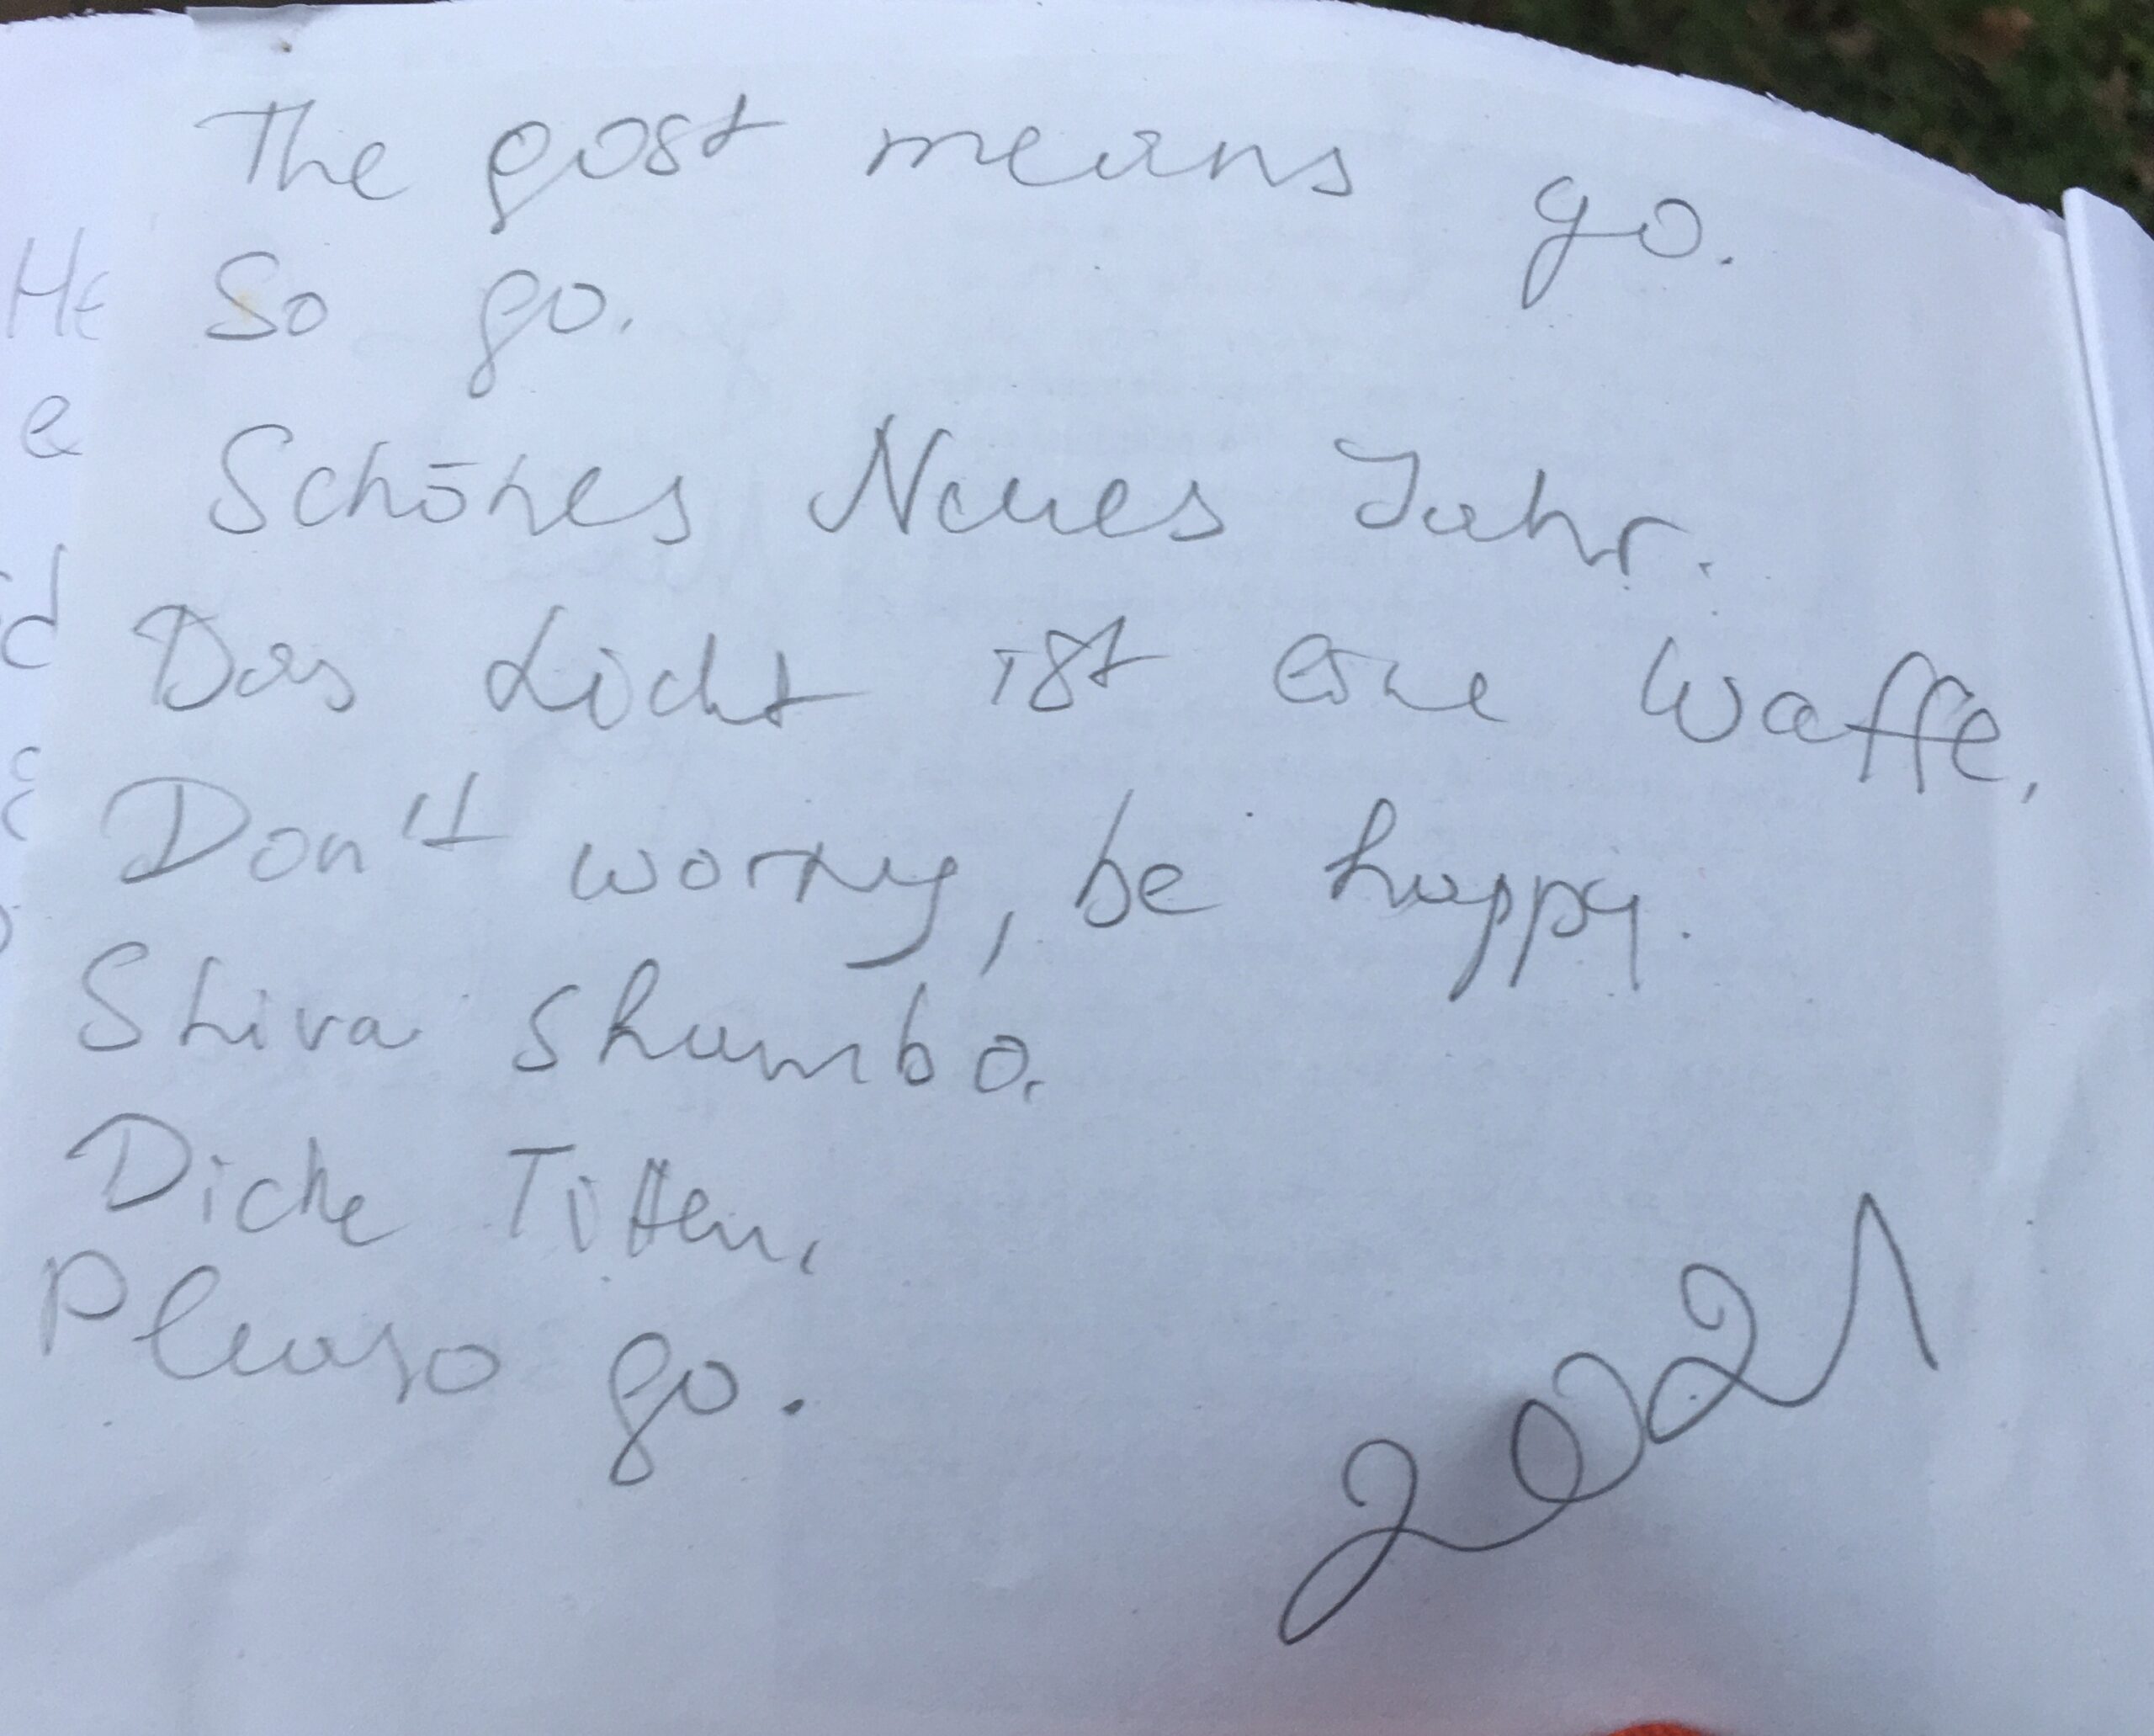 The gost means go.
So go.
Schönes Neues Jahr.
Das Licht ist eine Waffe.
Don't worry, be happy.
Shiva Shambo.
Dicke Titten.
Please go.
2021